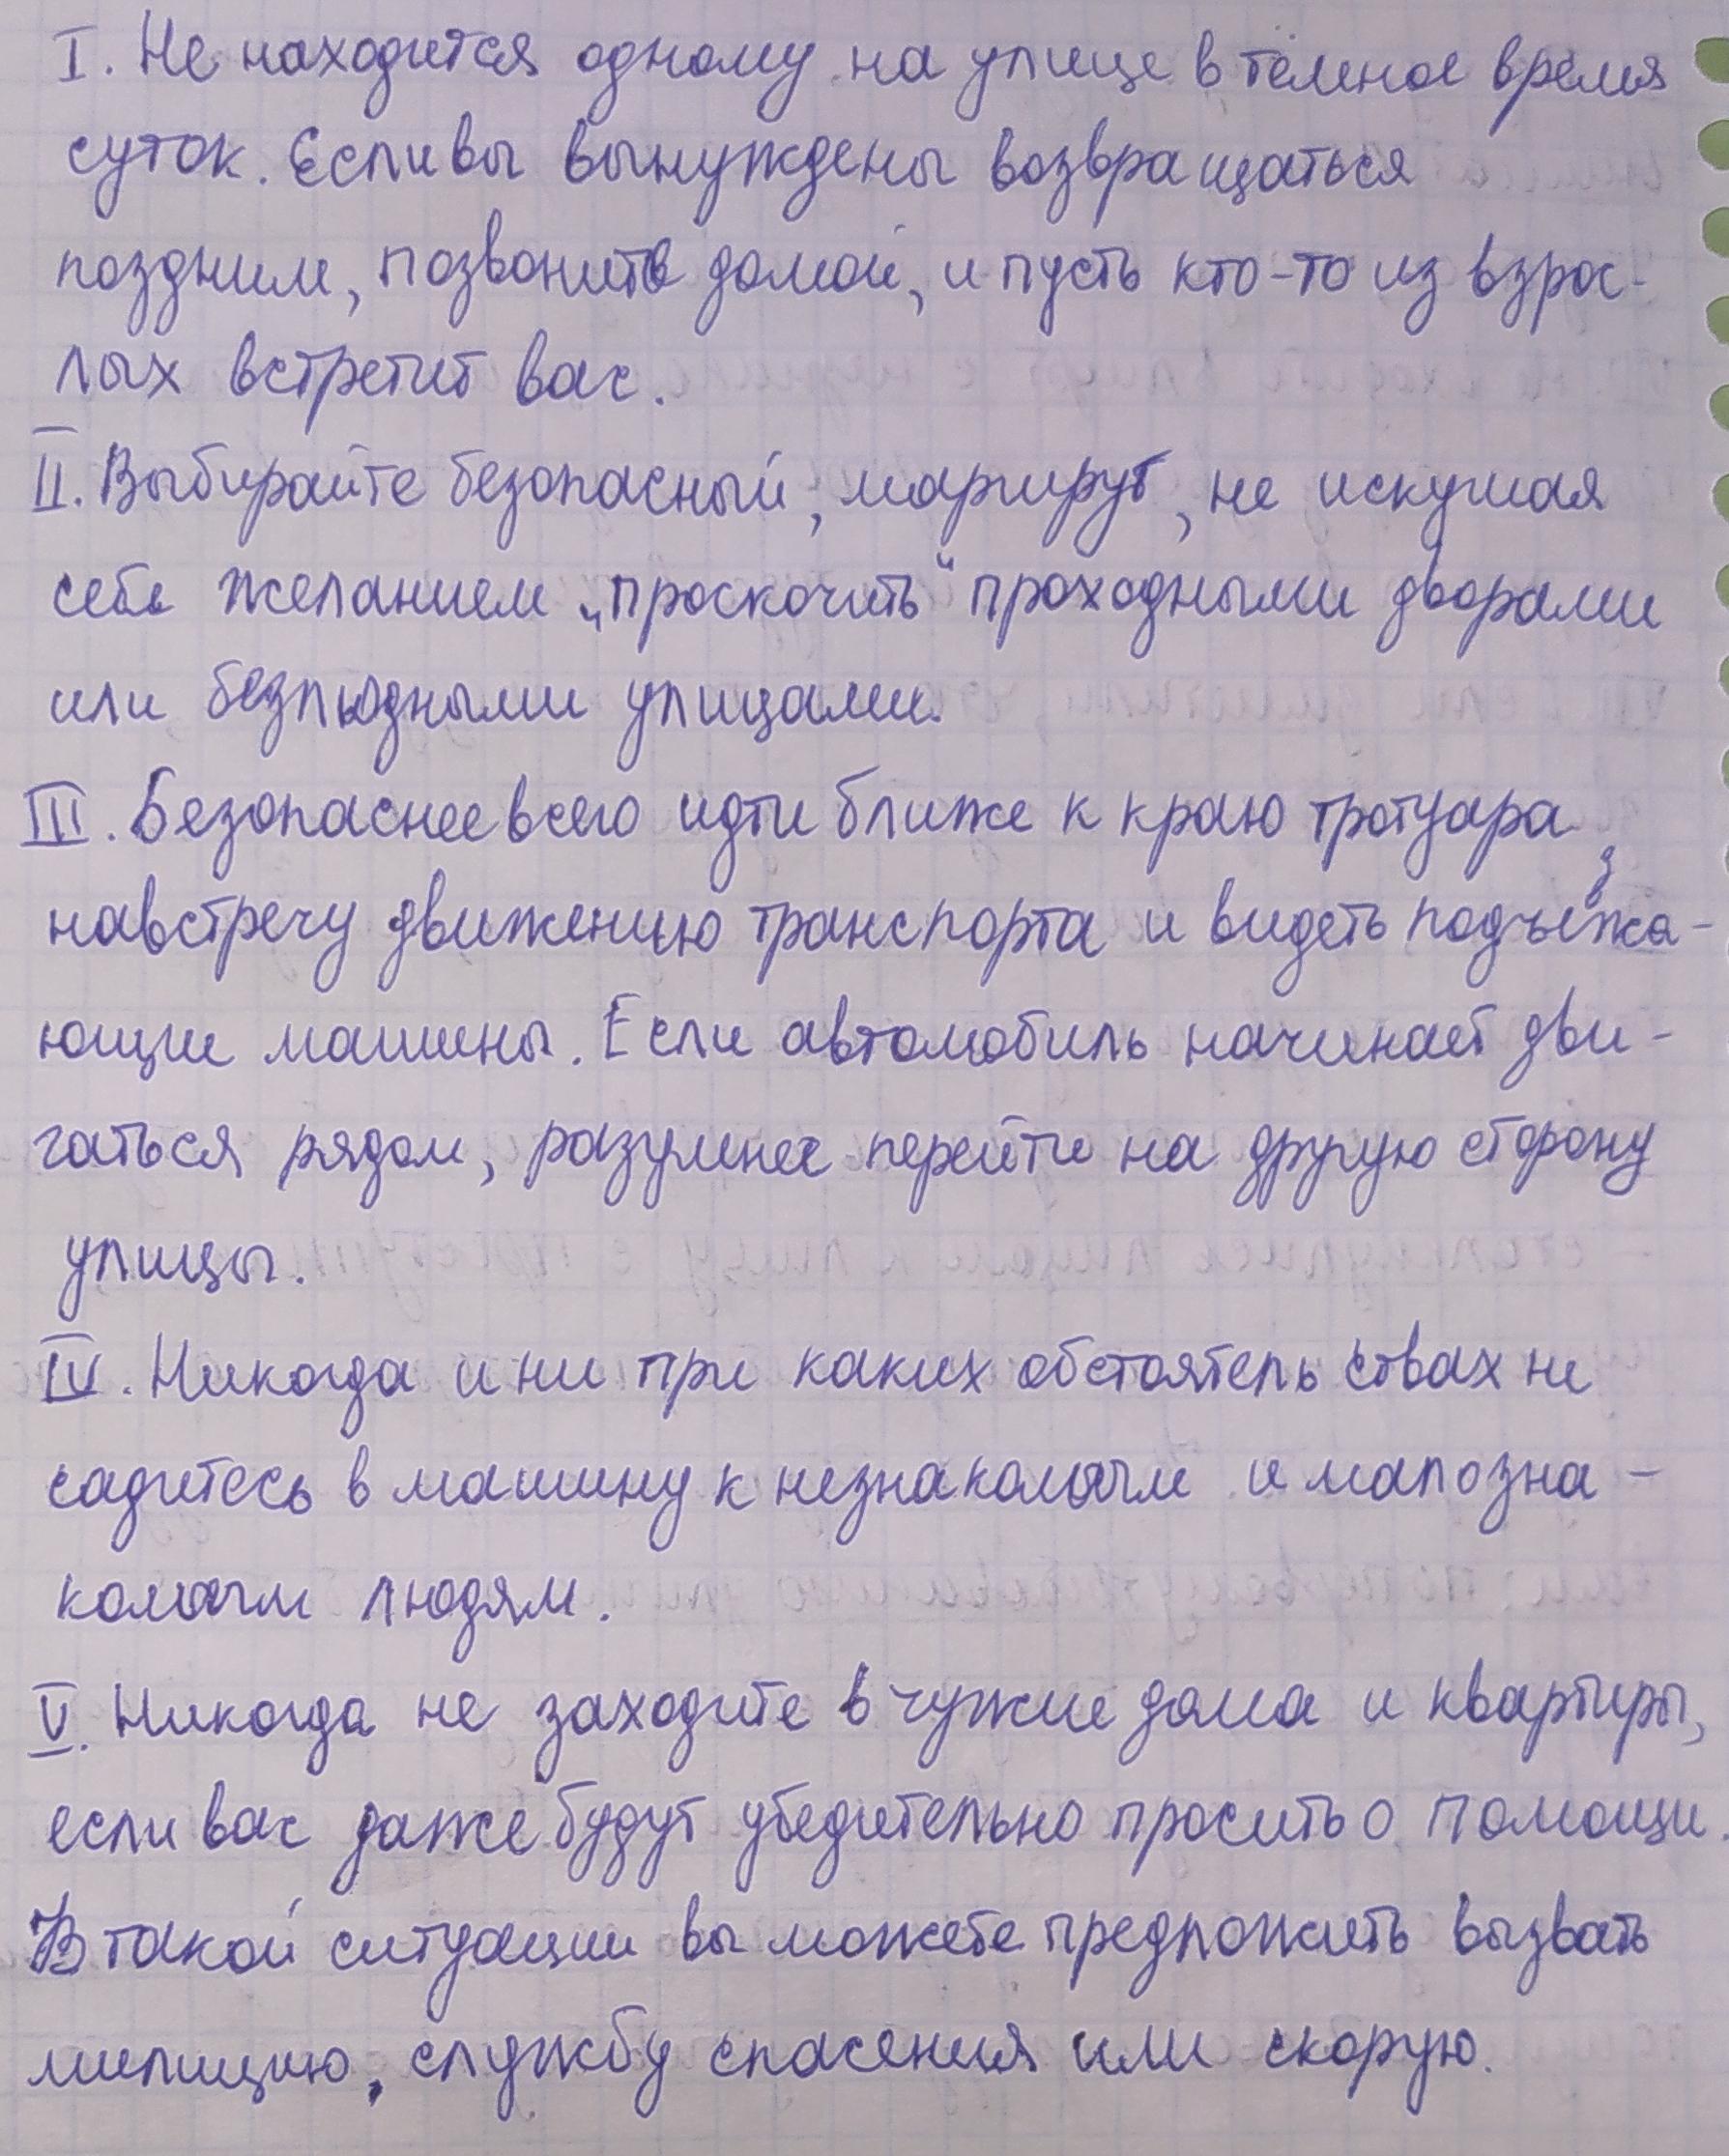 I. Не находится одному на улице в тёмное время
суток. Если вы вынуждены возвращаться
поздним, позвоните домой, и пусть кто-то из взрос-
лых встретит вас.
II. Выбирайте безопасный, маршрут, не искушая
себя желанием „проскочить“ проходными дворами
или безлюдными улицами.
III. Безопаснее всего идти ближе к краю тротуара,
навстречу движению транспорта и видеть подъезжа-
ющие машины. Если автомобиль начинает дви-
гаться рядом, разумнее перейти на другую сторону
улицы.
IV. Никогда и ни при каких обстоятельствах не
садитесь в машину к незнакомым и малозна-
комым людям.
V. Никогда не заходите в чужие дома и квартиры,
если вас даже будут убедительно просить о помощи.
В такой ситуации вы можете предложить вызвать
милицию, службу спасения или скорую.